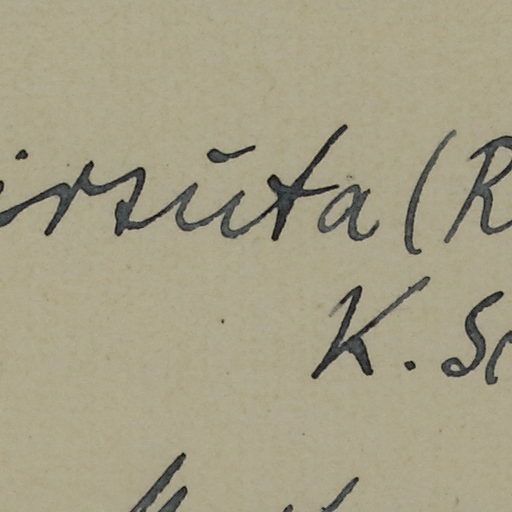 irsūta (R
K. Sc